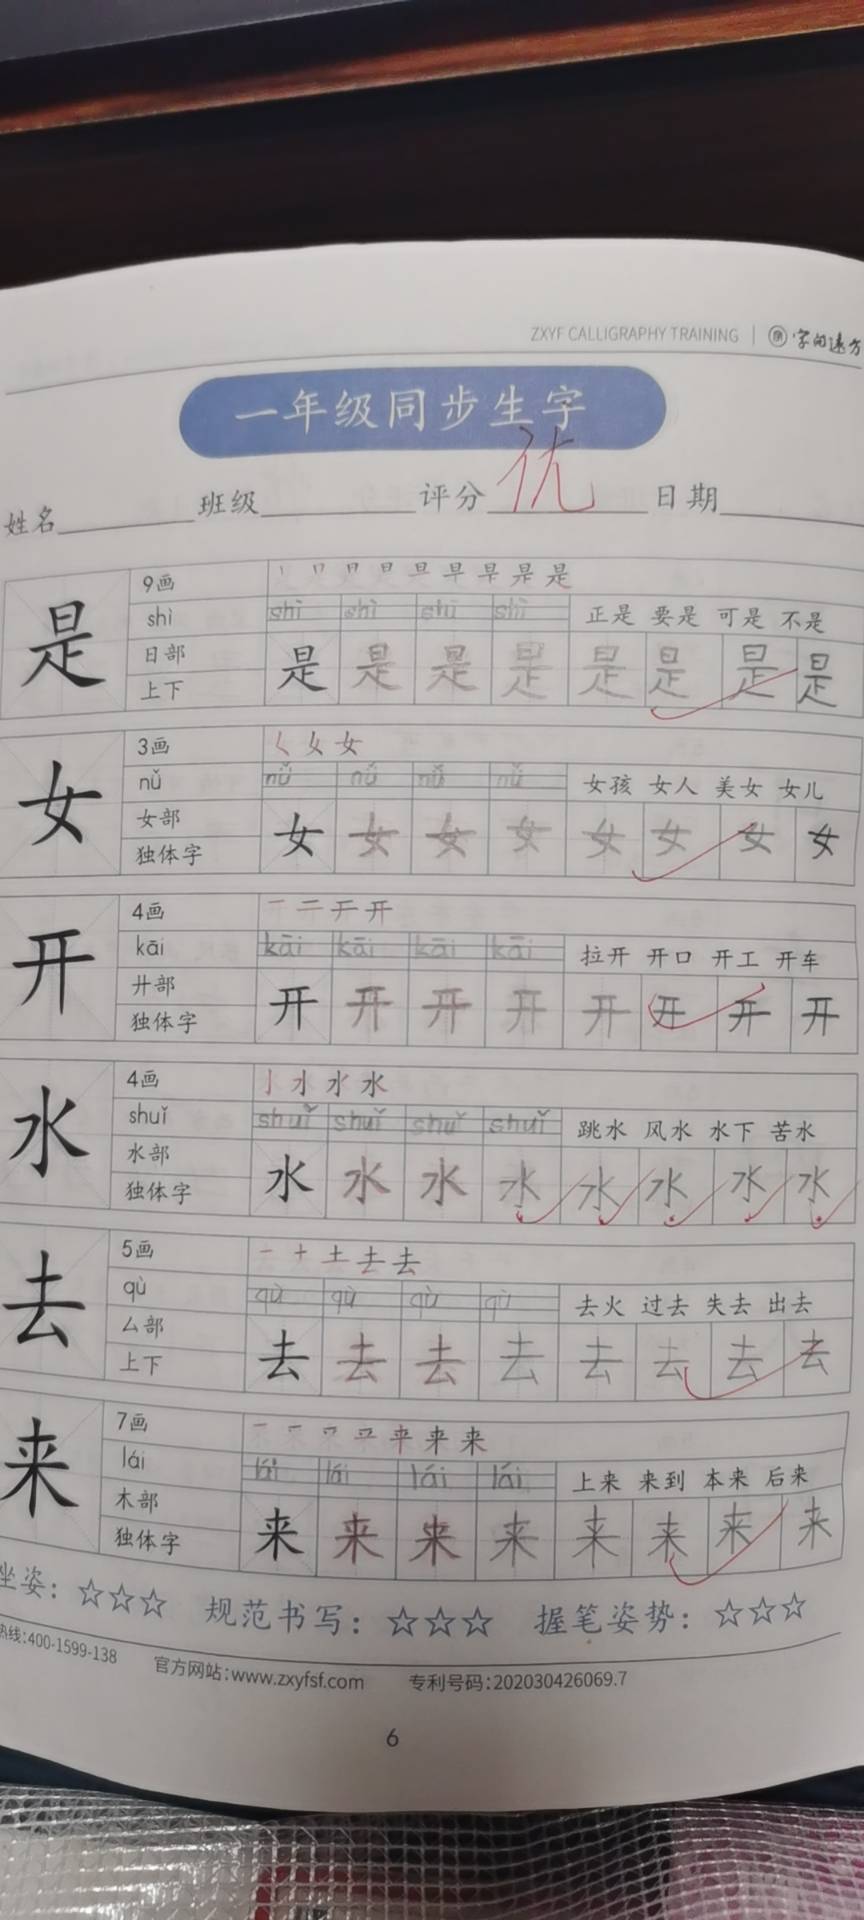 ZXYF CALLIGRAPHY TRAINING | 字的远方
一年级同步生字
姓名 班级 评分 优 日期
是 9画
shì shì shì shì shì 正是 要是 可是 不是
日部
上下 是 是 是 是 是 是 是 是
女 3画 女
nǚ nǚ nǚ nǚ nǚ 女孩 女人 美女 女儿
女部
独体字 女 女 女 女 女 女 女 女
开 4画 一 二 开 开
kāi kāi kāi kāi kāi 拉开 开口 开工 开车
廾部
独体字 开 开 开 开 开 开 开 开
水 4画 亅 水 水 水
shuǐ shuǐ shuǐ shuǐ shuǐ 跳水 风水 水下 苦水
水部
独体字 水 水 水 水 水 水 水 水
去 5画 一 十 土 去 去
qù qù qù qù qù 去火 过去 失去 出去
厶部
上下 去 去 去 去 去 去 去 去
来 7画 来 来
lái lái lái lái lái 上来 来到 本来 后来
木部
独体字 来 来 来 来 来 来 来 来
坐姿：☆☆☆ 规范书写：☆☆☆ 握笔姿势：☆☆☆
热线:400-1599-138 官方网站:www.zxyfsf.com 专利号码:202030426069.7
6